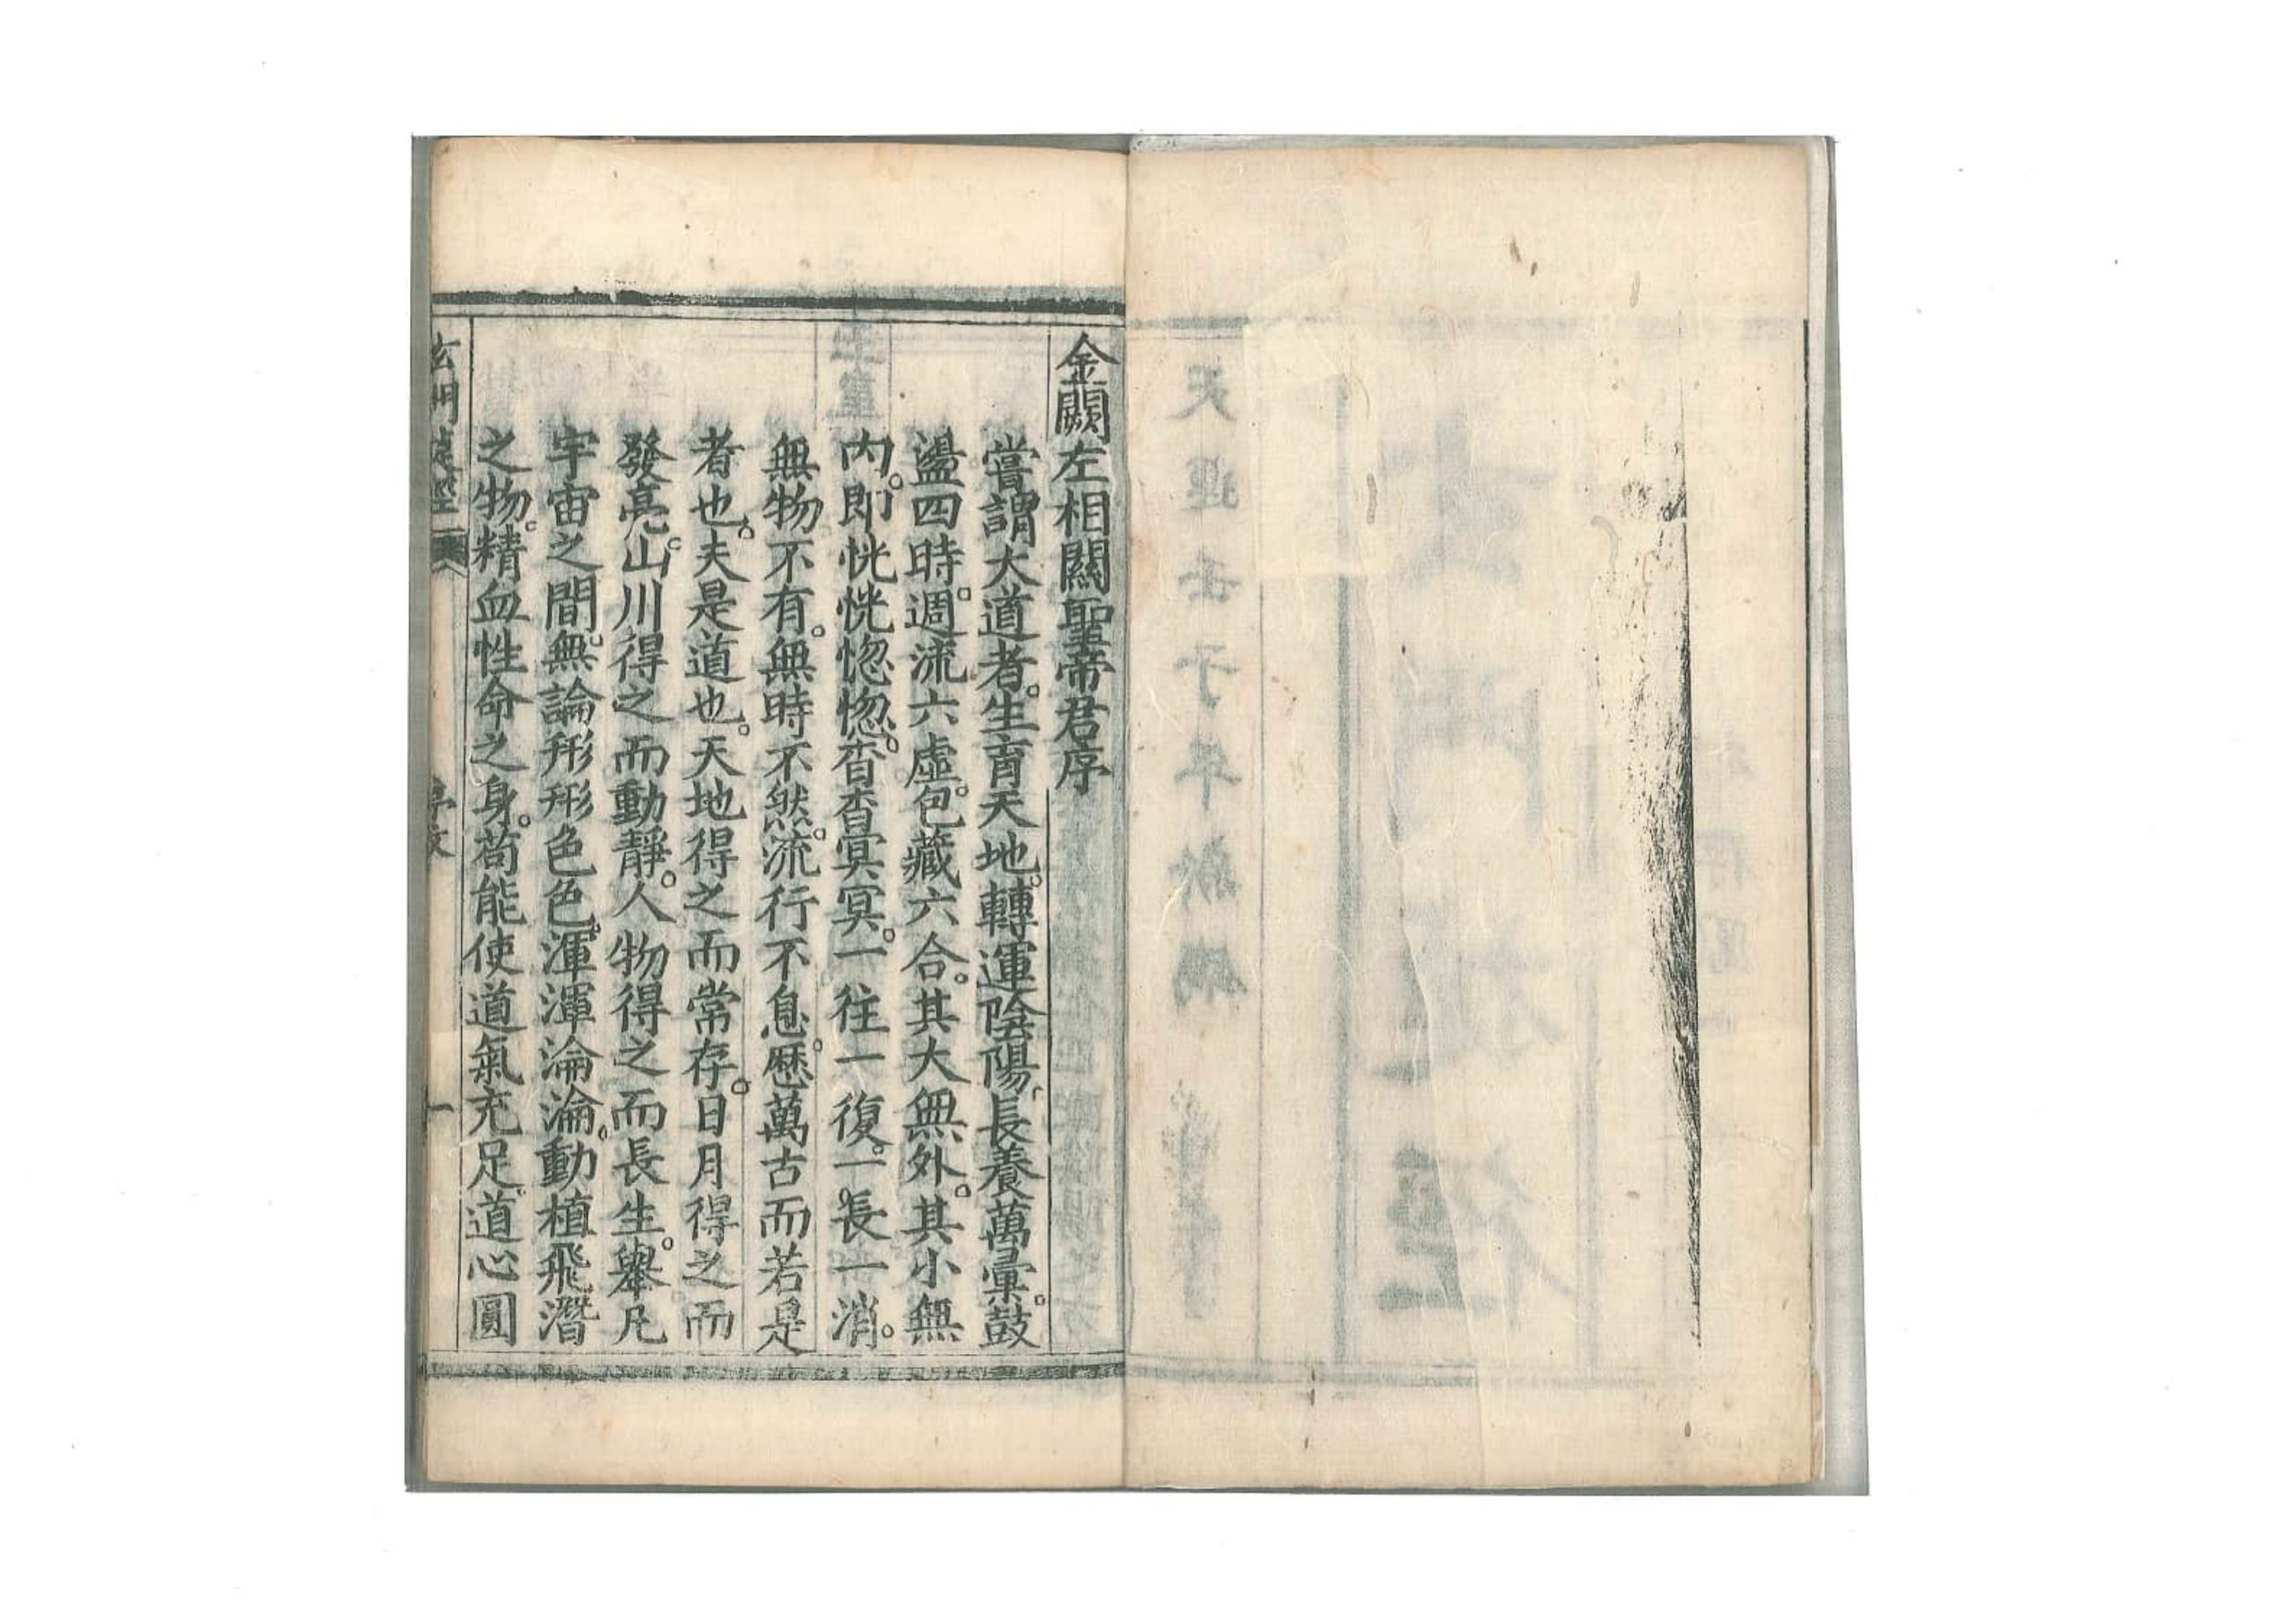 金闕左相關聖帝君序
嘗謂大道者。生育天地。轉運陰陽。長養萬彙。鼓
盪四時。週流六虛。包藏六合。其大無外。其小無
內。即恍恍惚惚。杳杳冥冥。一往一復。一長一消。
無物不有。無時不然。流行不息。歷萬古而若是
者也。夫是道也。天地得之而常存。日月得之而
發亮。山川得之而動靜。人物得之而長生。舉凡
宇宙之間。無論形形色色。渾渾淪淪。動植飛潛
之物。精血性命之身。苟能使道氣充足。道心圓
玄門 經 序文 一